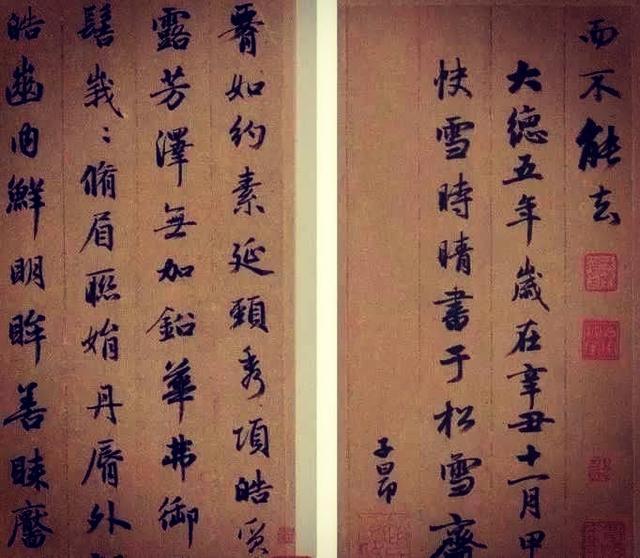 如約素延頸秀項皓質
露芳澤無加鉛華弗御
髻峩〻脩眉聮娟丹脣外
皓齒内鮮明眸善睞靨
而不能去
大德五年歲在辛丑十一月甲
快雪時晴書于松雪齋
子昂